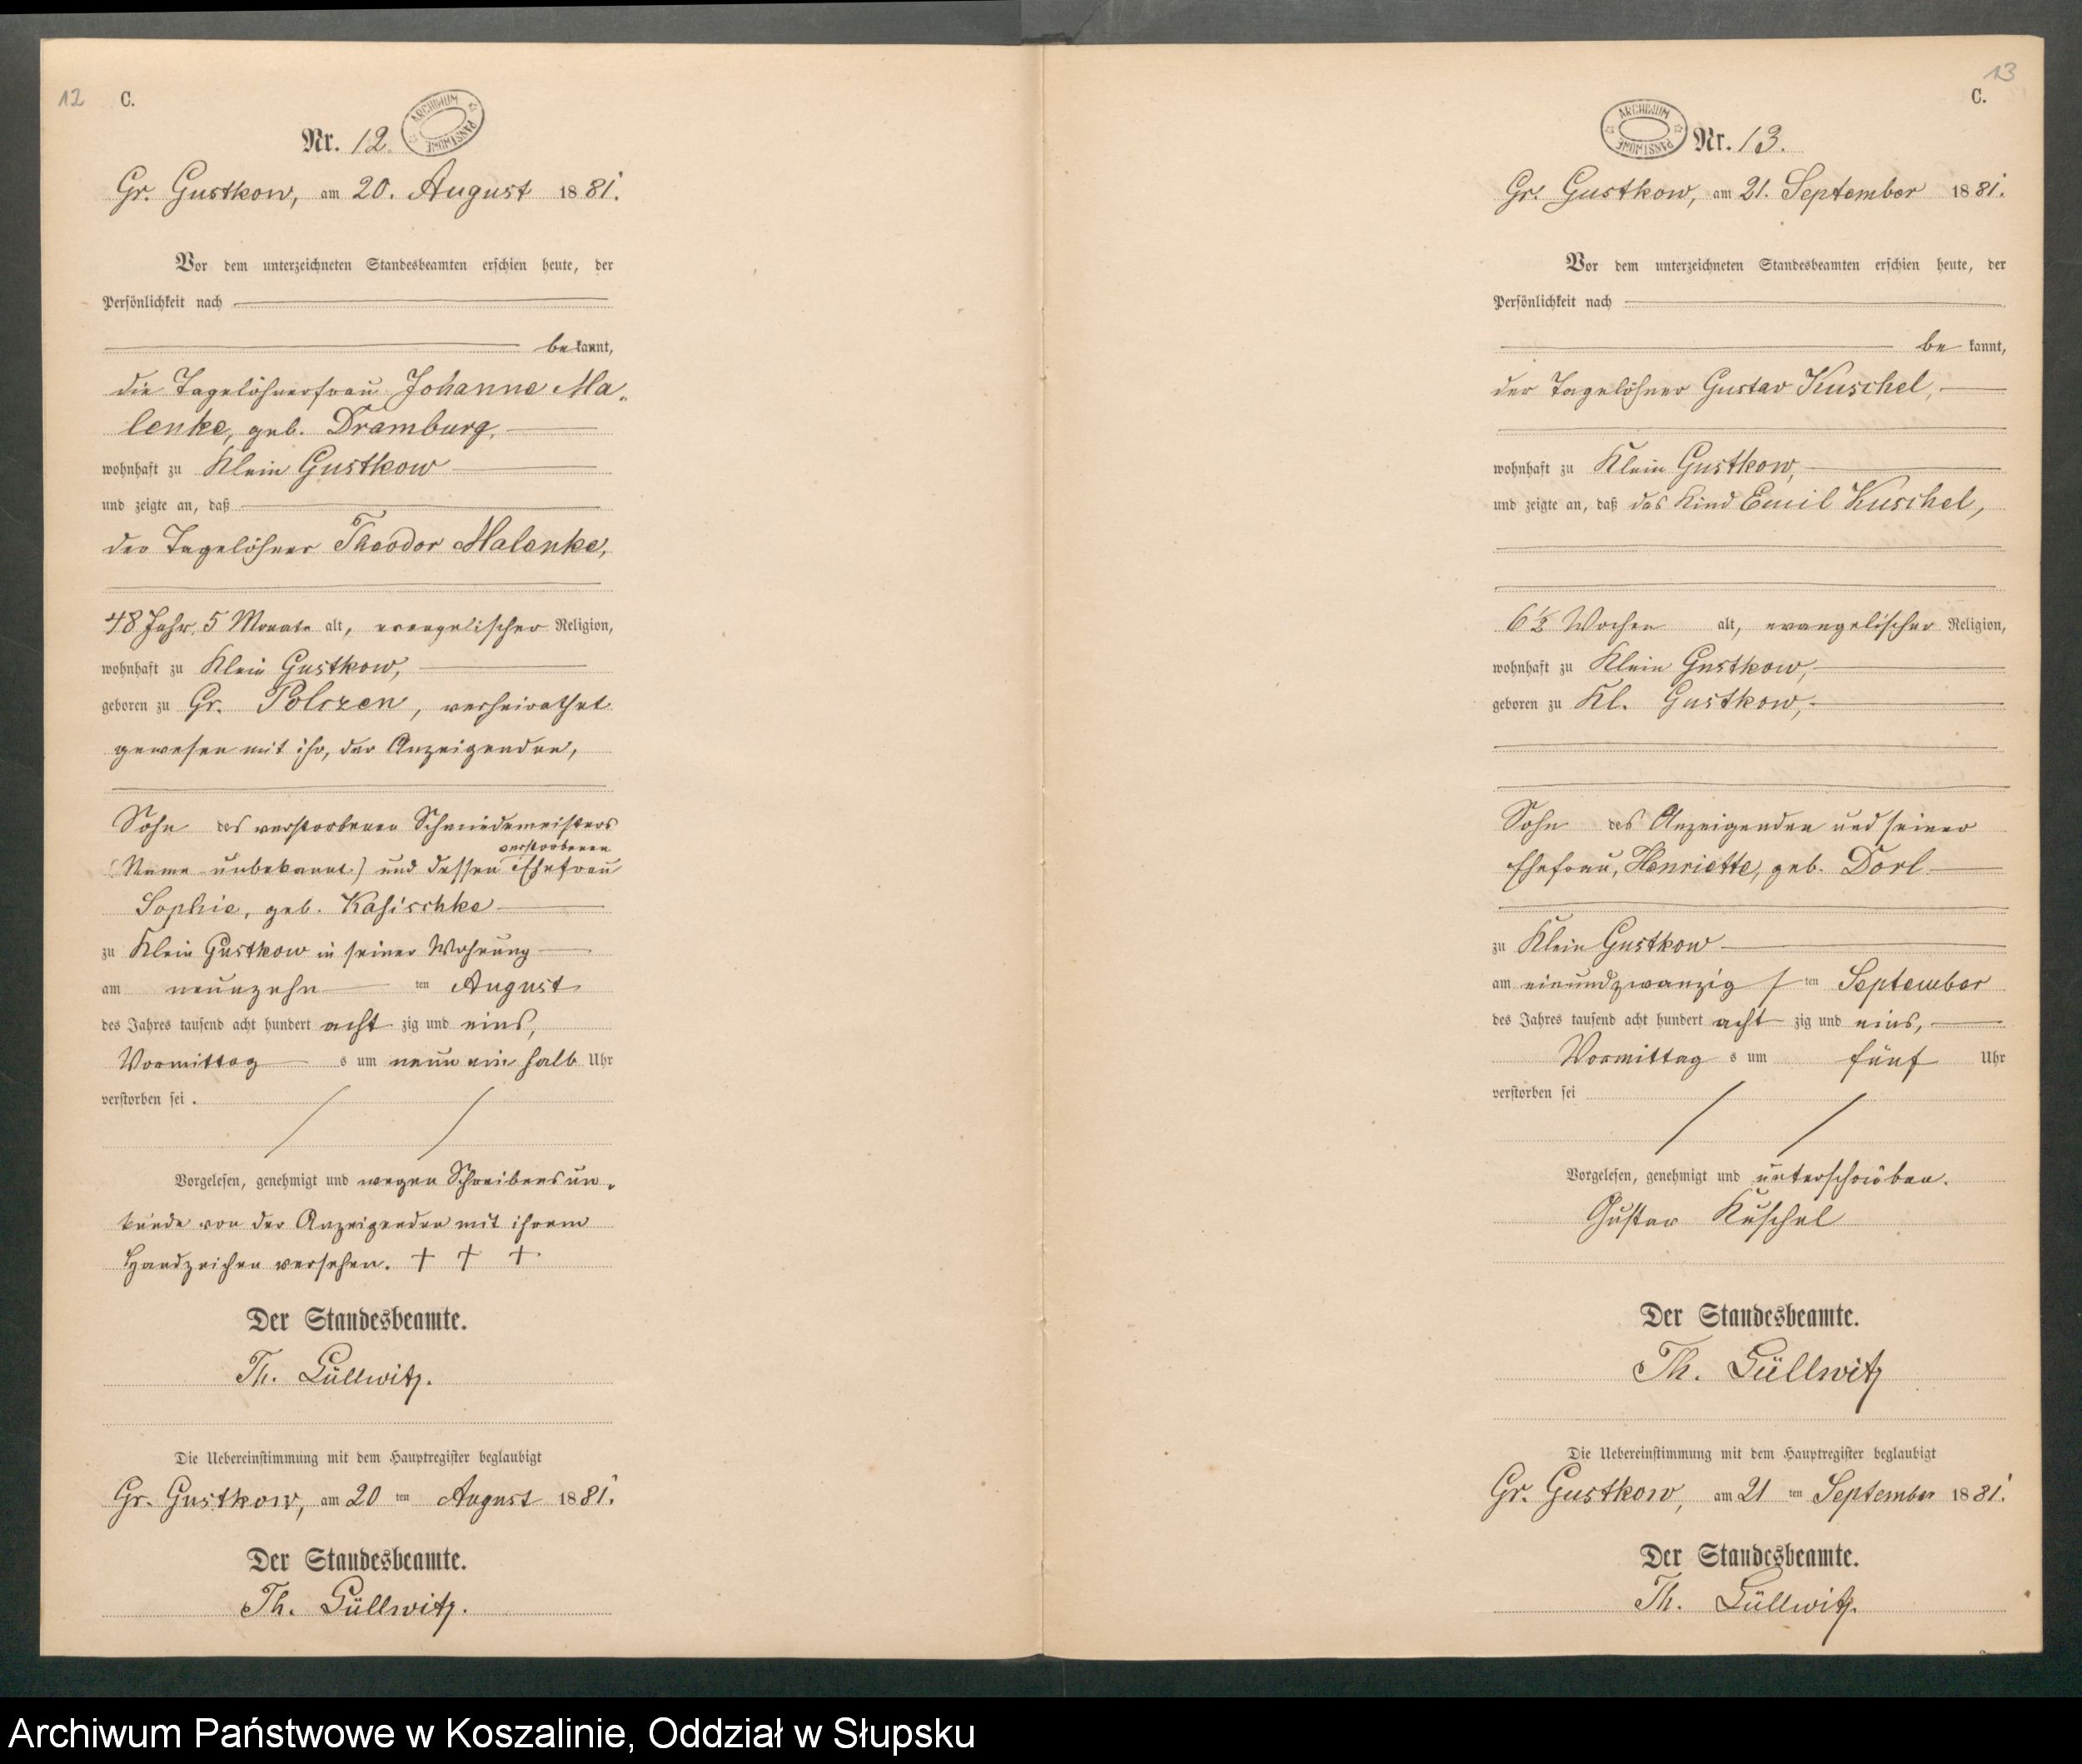 12 C.
ARCHIWUM PAŃSTWOWE
Nr. 12.
Gr. Gustkow, am 20. August 1881.
Vor dem unterzeichneten Standesbeamten erschien heute, der
Persönlichkeit nach
bekannt,
die Tagelöhnerfrau Johanne Ma-
lenke, geb. Dramburg,
wohnhaft zu Klein Gustkow
und zeigte an, daß
der Tagelöhner Theodor Malenke,
48 Jahr, 5 Monate alt, evangelischer Religion,
wohnhaft zu Klein Gustkow,
geboren zu Gr. Polczen, verheirathet
gewesen mit ihr, der Anzeigenden,
Sohn des verstorbenen Schmiedemeisters
verstorbenen
(Name unbekannt) und dessen Ehefrau
Sophie, geb. Kasischke
zu Klein Gustkow in seiner Wohnung
am neunzehn ten August
des Jahres tausend acht hundert acht zig und eins,
Vormittag s um neun ein halb Uhr
verstorben sei.
Vorgelesen, genehmigt und wegen Schreibensun-
kunde von der Anzeigenden mit ihrem
Handzeichen versehen. + + +
Der Standesbeamte.
Th. Lüllwitz.
Die Uebereinstimmung mit dem Hauptregister beglaubigt
Gr. Gustkow, am 20 ten August 1881.
Der Standesbeamte.
Th. Lüllwitz.
13
C.
ARCHIWUM PAŃSTWOWE
Nr. 13.
Gr. Gustkow, am 21. September 1881.
Vor dem unterzeichneten Standesbeamten erschien heute, der
Persönlichkeit nach
be kannt,
der Tagelöhner Gustav Kuschel,
wohnhaft zu Klein Gustkow,
und zeigte an, daß das Kind Emil Kuschel,
6½ Wochen alt, evangelischer Religion,
wohnhaft zu Klein Gustkow,
geboren zu Kl. Gustkow,
Sohn des Anzeigenden und seiner
Ehefrau, Henriette, geb. Dorl
zu Klein Gustkow
am einundzwanzig ten September
des Jahres tausend acht hundert acht zig und eins,
Vormittag s um fünf Uhr
verstorben sei
Vorgelesen, genehmigt und unterschrieben.
Gustav Kuschel
Der Standesbeamte.
Th. Lüllwitz
Die Uebereinstimmung mit dem Hauptregister beglaubigt
Gr. Gustkow, am 21 ten September 1881.
Der Standesbeamte.
Th. Lüllwitz.
Archiwum Państwowe w Koszalinie, Oddział w Słupsku